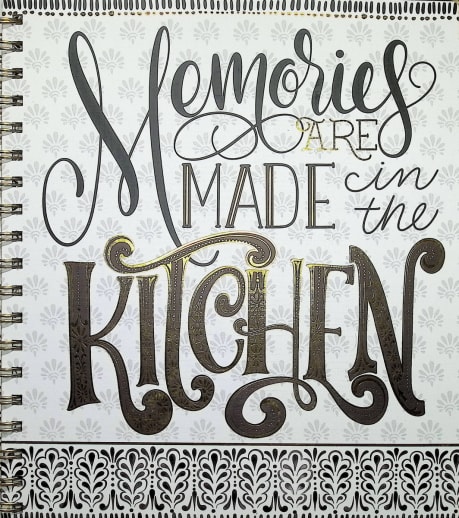 Memories
ARE
MADE in
the
KITCHEN